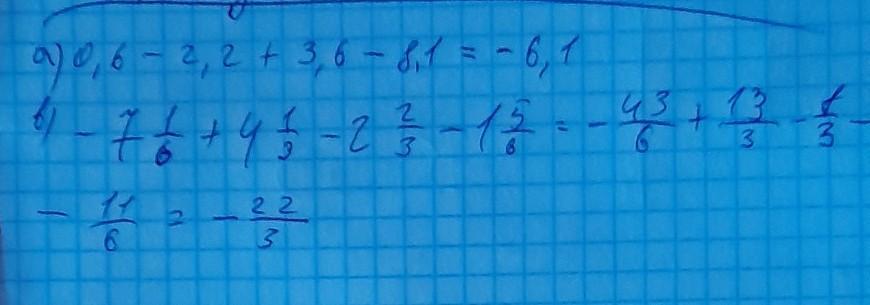 а) 0,6 - 2,2 + 3,6 - 8,1 = - 6,1
в) - 7 1/6 + 4 1/3 - 2 2/3 - 1 5/6 = - 43/6 + 13/3 - 8/3 -
- 11/6 = - 22/3